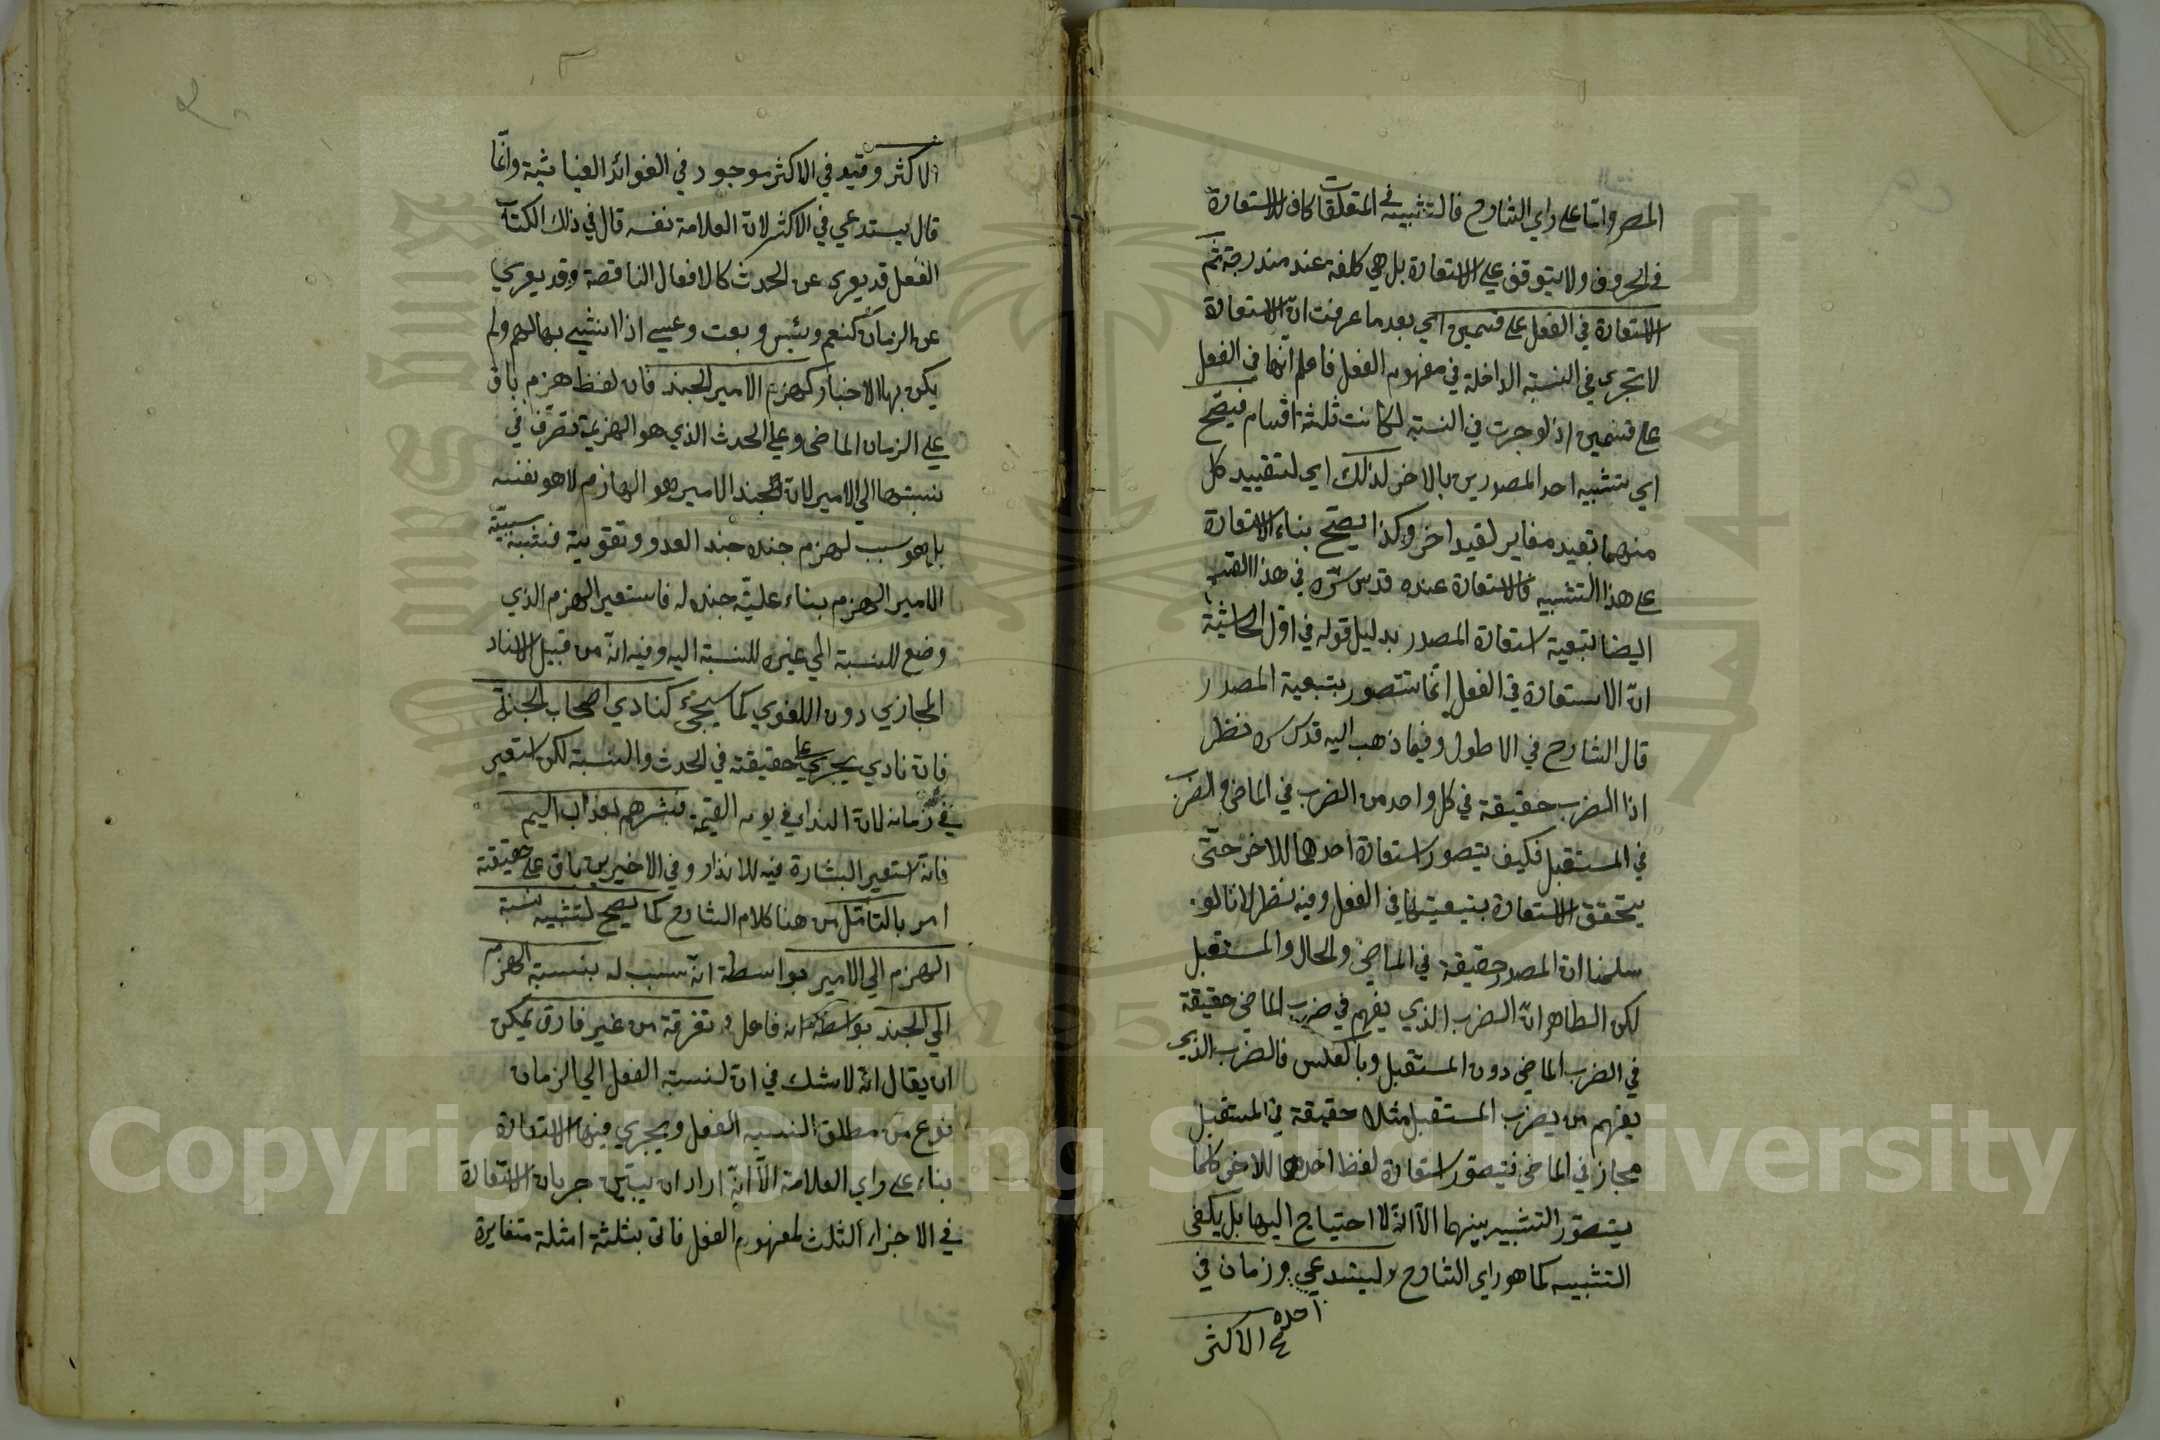 المصر واما على راي الشارح فالتشبيه في المتعلقات كاف للاستعارة
في الحروف ولا يتوقف على الاستعارة بل هي كلفة عند مندرجة ثم
الاستعارة في الفعل على قسمين اي بعد ما عرفت ان الاستعارة
لا تجري في النسبة الداخلة في مفهوم الفعل فاعلم انها في الفعل
على قسمين اذ لو جرت في النسبة لكانت ثلثة اقسام فيصح
اي تشبيه احد المصدرين بالاخر لذلك اي لتقييد كل
منهما بقيد مغاير لقيد اخر وكذا يصح بناء الاستعارة
على هذا التشبيه فالاستعارة عنده قدس سره في هذا القسم
ايضا بتبعية استعارة المصدر بدليل قوله في اول الحاشية
ان الاستعارة في الفعل انما تتصور بتبعية المصدر
قال الشارح في الاطول وفيما ذهب اليه قدس سره نظر
اذا الضرب حقيقة في كل واحد من الضرب في الماضي والضرب
في المستقبل فكيف يتصور استعارة احدهما للاخر حتى
يتحقق الاستعارة بتبعيتها في الفعل وفيه نظر لانا لو
سلمنا ان المصدر حقيقة في الماضي والحال والمستقبل
لكن الظاهر ان الضرب الذي يفهم في ضرب الماضي حقيقة
في الضرب الماضي دون المستقبل وبالعكس فالضرب الذي
يفهم من يضرب المستقبل مثلا حقيقة في المستقبل
مجاز في الماضي فيتصور استعارة لفظ احدهما للاخر كلما
يتصور التشبيه بينهما الا انه لا احتياج اليها بل يكفي
التشبيه كما هو راي الشارح وليستدعي وزمان في
احده
الاكثر
الاكثر وقيد في الاكثر موجود في الفوائد الغياثية وانما
قال يستدعي في الاكثر لان العلامة نفسه قال في ذلك الكتاب
الفعل قد يعرى عن الحدث كالافعال الناقصة وقد يعرى
عن الزمان كنعم وبئس وبعت وعسى اذا انشئ بها لهم ولم
يكن بها الاخبار كهزم الامير الجند فان لفظ هزم باق
على الزمان الماضي وعلى الحدث الذي هو الهزيمة تصرف في
نسبتها الى الامير لان جند الامير هو الهازم لا هو نفسه
بل هو سبب لهزم جنده جند العدو وتقويته فشبه سببية
الامير الهزم بناء علية جنده له فاستعير الهزم الذي
وضع للنسبة الى غيره للنسبة اليه وفيه انه من قبيل الاسناد
المجازي دون اللغوي كما سيجئ كنادى اصحاب الجنة
فان نادى يجري على حقيقته في الحدث والنسبة لكن استعير
في زمانه لان النداء في يوم القيمة فبشرهم بعذاب اليم
فانه استعير البشارة فيه للانذار وفي الاخيرين باق على حقيقته
امر بالتأمل من هنا كلام الشارح كما يصح لتشبيه نسبة
الهزم الى الامير بواسطة انه سبب له بنسبة الهزم
الى الجند بواسطة انه فاعل و تفرقة من غير فارق يمكن
ان يقال انه لا شك في ان لنسبة الفعل الى الزمان
نوع من مطلق النسبة الفعل ويجري فيها الاستعارة
بناء على راي العلامة الا انه اراد ان يبين جريان الاستعارة
في الاجزاء الثلث لمفهوم الفعل فاتى بثلثة امثلة متغايرة
Copyright © King Saud University
1957